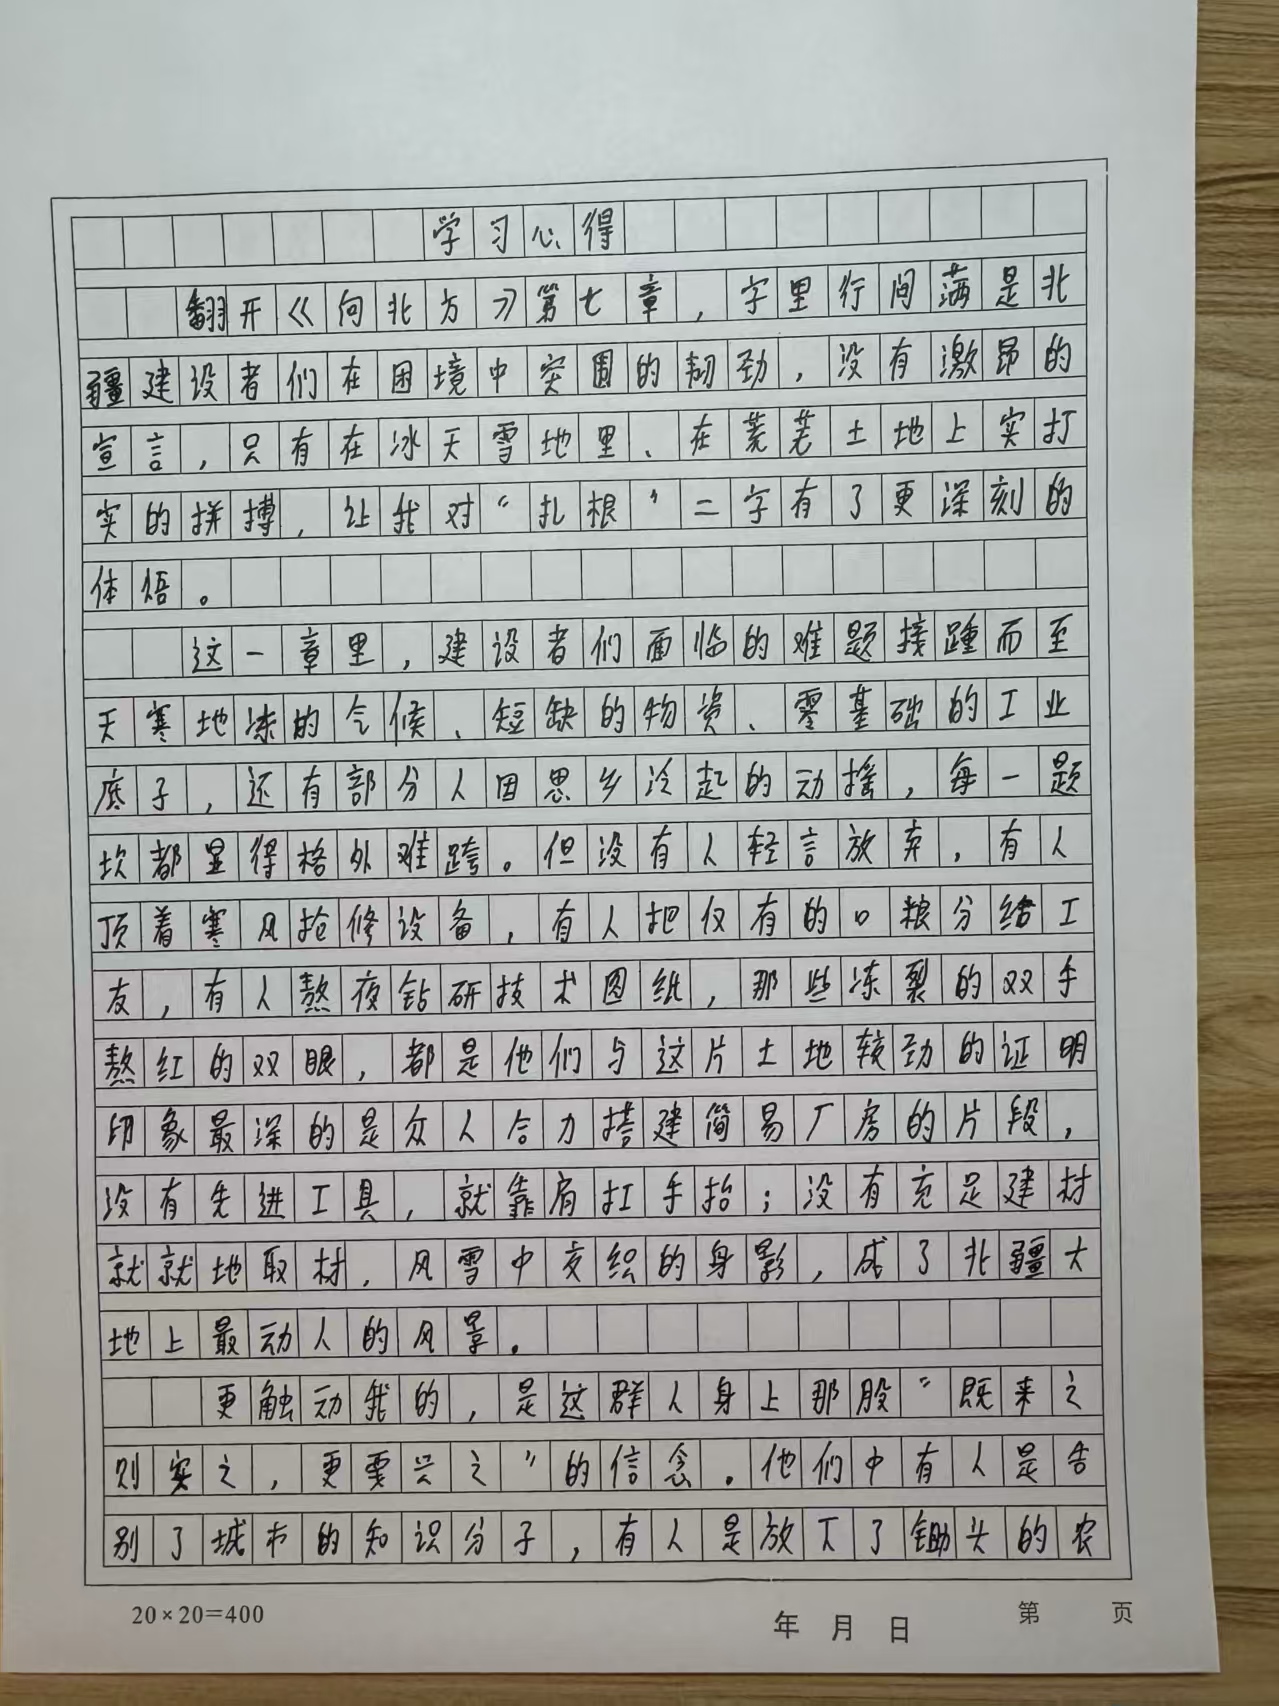 学习心得
翻开《向北方》第七章，字里行间满是北
疆建设者们在困境中突围的韧劲，没有激昂的
宣言，只有在冰天雪地里、在荒芜土地上实打
实的拼搏，让我对“扎根”二字有了更深刻的
体悟。
这一章里，建设者们面临的难题接踵而至
天寒地冻的气候、短缺的物资、零基础的工业
底子，还有部分人因思乡泛起的动摇，每一题
坎都显得格外难跨。但没有人轻言放弃，有人
顶着寒风抢修设备，有人把仅有的口粮分给工
友，有人熬夜钻研技术图纸，那些冻裂的双手
熬红的双眼，都是他们与这片土地较劲的证明
印象最深的是众人合力搭建简易厂房的片段，
没有先进工具，就靠肩扛手抬；没有充足建材
就就地取材，风雪中交织的身影，成了北疆大
地上最动人的风景。
更触动我的，是这群人身上那股“既来之
则实之，更要兴之”的信念。他们中有人是告
别了城市的知识分子，有人是放下了锄头的农
20×20=400
年 月 日
第 页